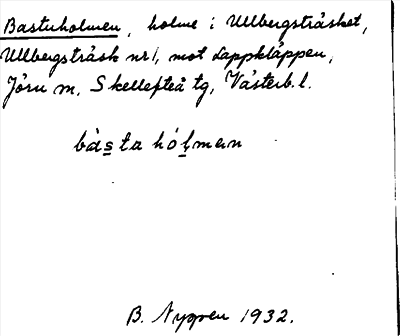 Bastuholmen, holme i Ullbergsträsket,
Ullbergsträsk nr 1, mot Lappkläppen,
Jörn sn, Skellefteå tg, Västerb. l.
bàsta hólmen
B. Nygren 1932.